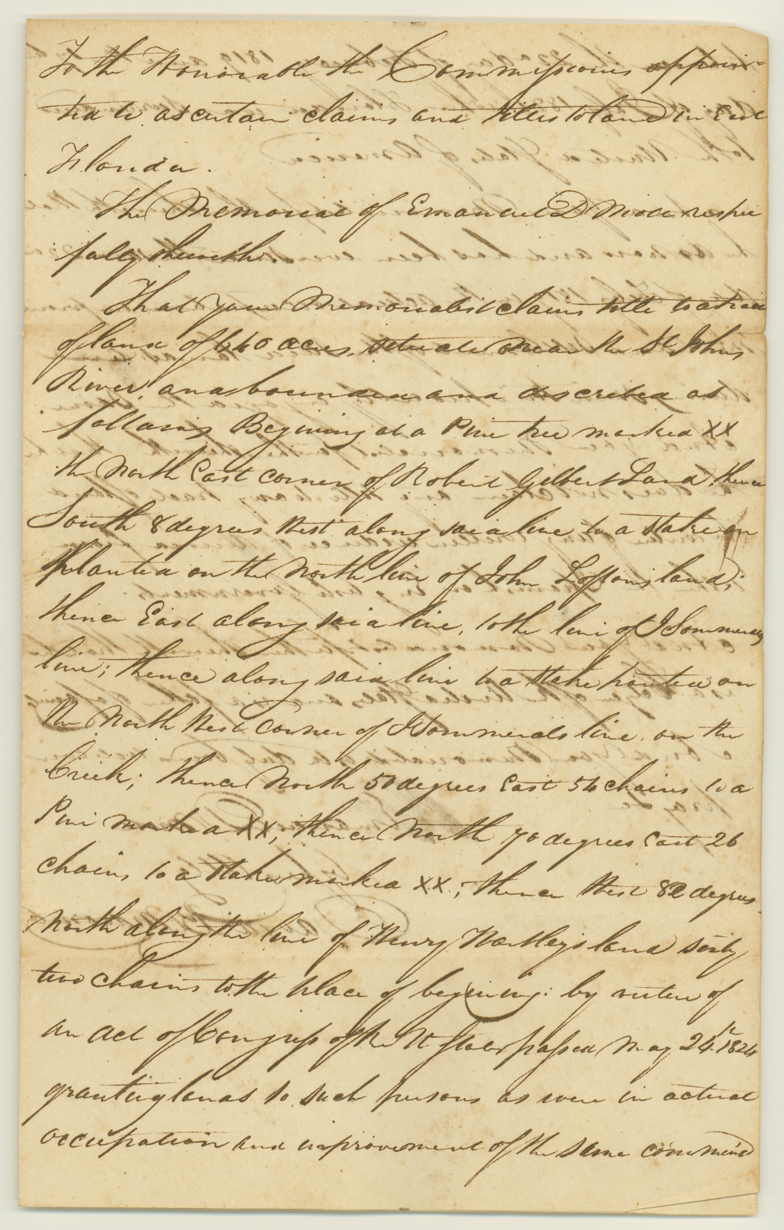 To the Honorable the Commissioners appoin-
ted to ascertain claims and titles to land in East
Florida.
The Memorial of Emanuel D Mott respec
fully sheweth.
That your Memorialist claims title to a tract
of land of 640 acres, situate near the St Johns
River, and bounded and discribed as
follows Begining at a Pine tree marked XX
the North East corner of Robert Gilbert Land thence
South 8 degrees West along said line to a stake
planted on the North line of John Loftons land;
thence East along said line, to the line of J Sommerals
line; thence along said line to a stake planted on
the North West corner of J Sommerals line on the
Creek; thence North 50 degrees East 54 chains to a
Pine marked XX; thence North 70 degrees East 26
chains to a stake marked XX; thence West 82 degrees
North along the line of Henry Hartleys land sixty
two chains to the place of begining: by virtue of
an act of Congress of the U States passed May 24th 1824
granting lands to such persons as were in actual
occupation and improvement of the same